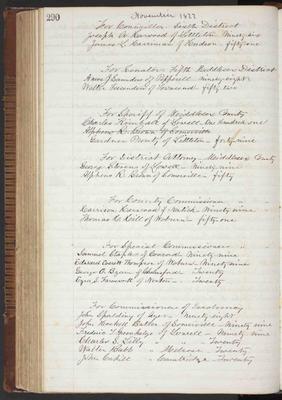 290
November 1877
For Councillor Sixth District
Joseph A. Harwood of Littleton Ninety six
James L. Carrimal of Hudson fifty-one
For Senator Fifth Middlesex District
of Pepperell Ninety eight
Walter Fessenden of Townsend fifty two
For Sheriff of Middlesex County
Charles Kimball of Lowell One hundred one
of Somerville
Gardner Prouty of Littleton forty nine
For District Attorney Middlesex County
George Stevens of Lowell Ninety nine
Alpheus R. Brown of Somerville fifty
For County Commissioner
Harrison Harwood of Natick Ninety nine
Thomas D. Hill of Woburn fifty one
For Special Commissioners
Samuel Staples of Concord Ninety nine
Edward Everett Thompson of Woburn Ninety nine
George O. Byam of Chelmsford Twenty
Cyrus L. Farnsworth of Newton Twenty
For Commissioners of Insolvency
John Spalding of Ayer Ninety eight
John Haskell Butler of Somerville Ninety nine
Frederic T. Greenhalge of Lowell Ninety nine
Charles S. Lilley " " Twenty
Walter Babb " Melrose Twenty
John Cahill " Cambridge Twenty